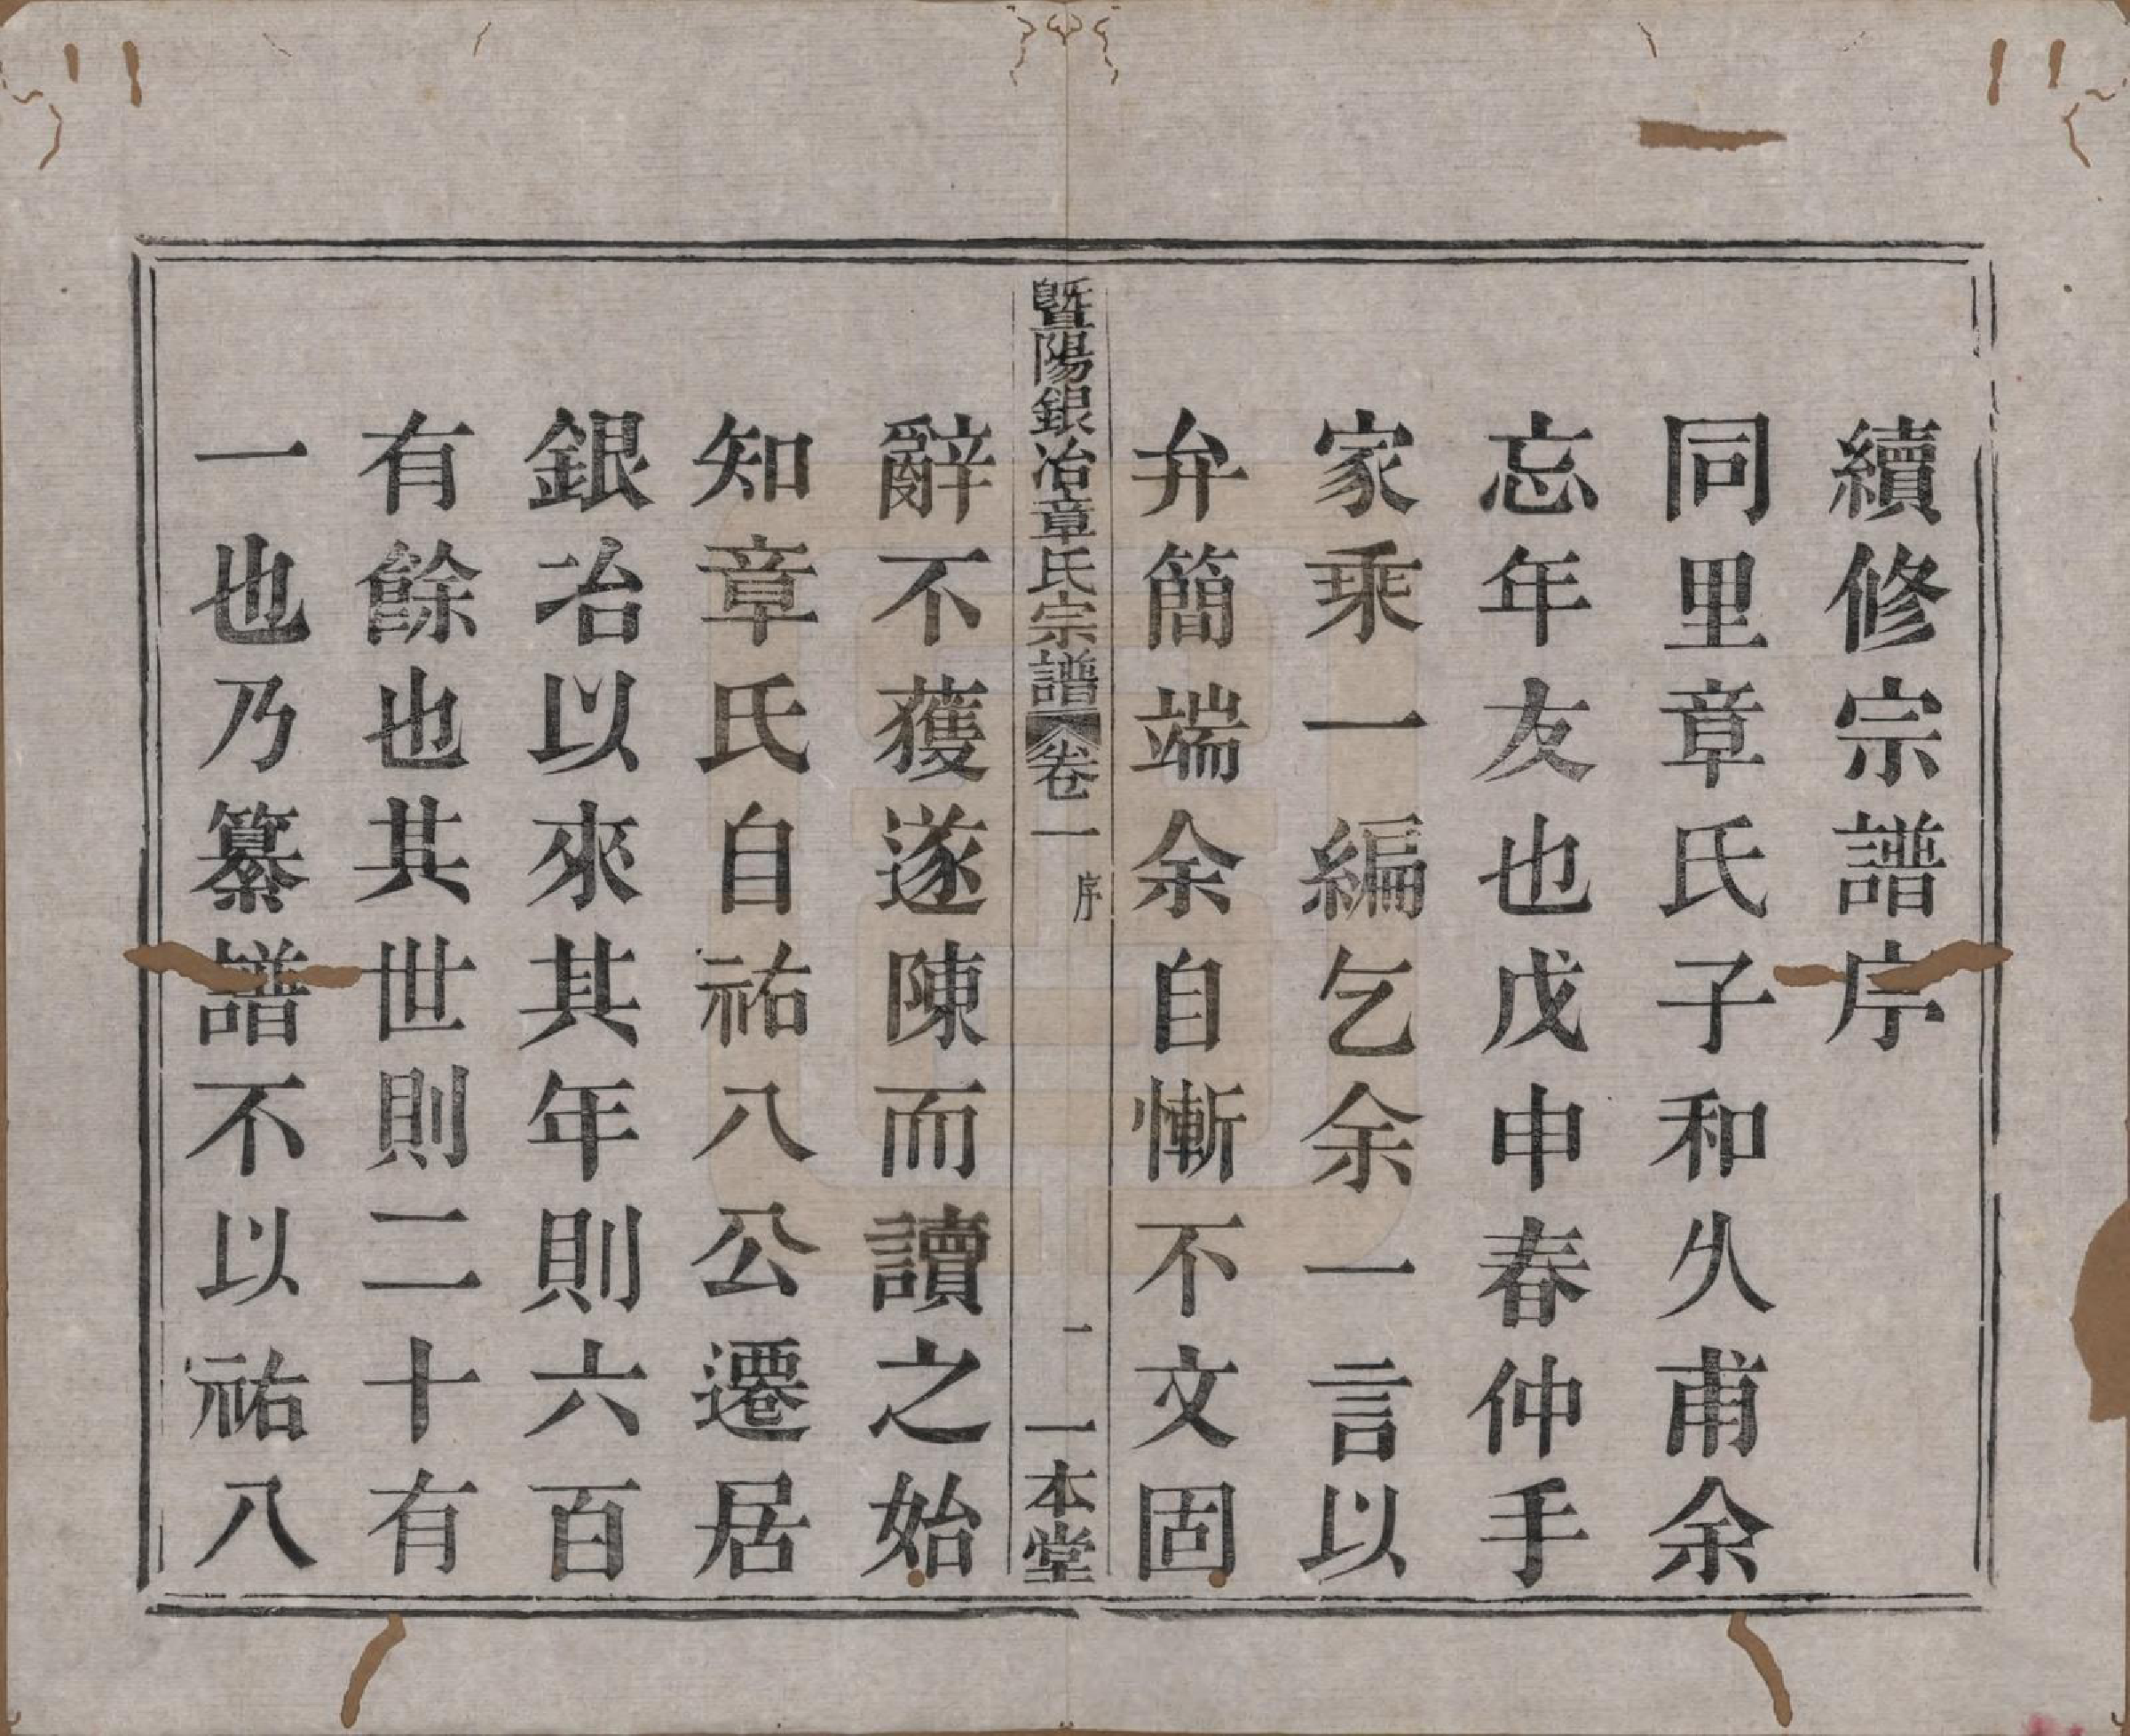 續修宗譜序
同里章氏子和久甫余
忘年友也戊申春仲手
家乘一編乞余一言以
弁簡端余自慚不文固
暨陽銀冶章氏宗譜 卷一 序 一 一本堂
辭不獲遂陳而讀之始
知章氏自祐八公遷居
銀冶以來其年則六百
有餘也其世則二十有
一也乃纂譜不以祐八